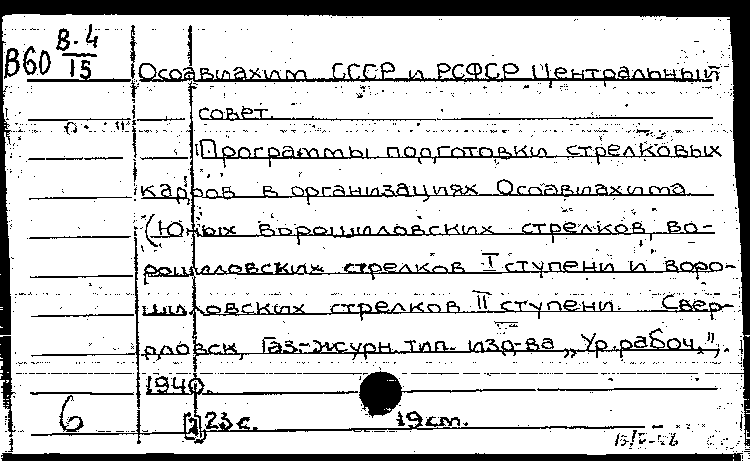 В60 В.4/15
Осоавиахим СССР и РСФСР Центральный
совет.
Программы подготовки стрелковых
кадров в организациях Осоавиахима
(Юных ворошиловских стрелков, во-
рошиловских стрелков I ступени и воро-
шиловских стрелков II ступени. Свер-
дловск, Газ-журн. тип. изд-ва „Ур. рабоч.",
1940.
6 23 с. 19 cm.